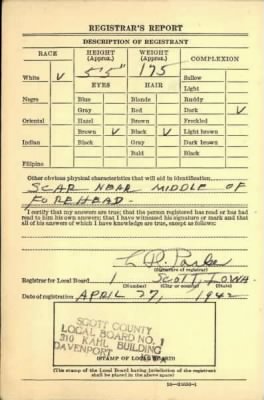 REGISTRAR'S REPORT
DESCRIPTION OF REGISTRANT
RACE HEIGHT (Approx.) WEIGHT (Approx.) COMPLEXION
White ✓ 5'5" 175 Sallow
EYES HAIR Light
Negro Blue Blonde Ruddy
Gray Red Dark ✓
Oriental Hazel Brown Freckled
Brown ✓ Black ✓ Light brown
Indian Black Gray Dark brown
Bald Black
Filipino
Other obvious physical characteristics that will aid in identification
SCAR NEAR MIDDLE OF
FOREHEAD-
I certify that my answers are true; that the person registered has read or has had
read to him his own answers; that I have witnessed his signature or mark and that
all of his answers of which I have knowledge are true, except as follows:
(Signature of registrar)
Registrar for Local Board 1 SCOTT IOWA
(Number) (City or county) (State)
Date of registration APRIL 27, 1942
SCOTT COUNTY
LOCAL BOARD NO. 1
310 KAHL BUILDING
DAVENPORT
(STAMP OF LOCAL BOARD)
(The stamp of the Local Board having jurisdiction of the registrant
shall be placed in the above space)